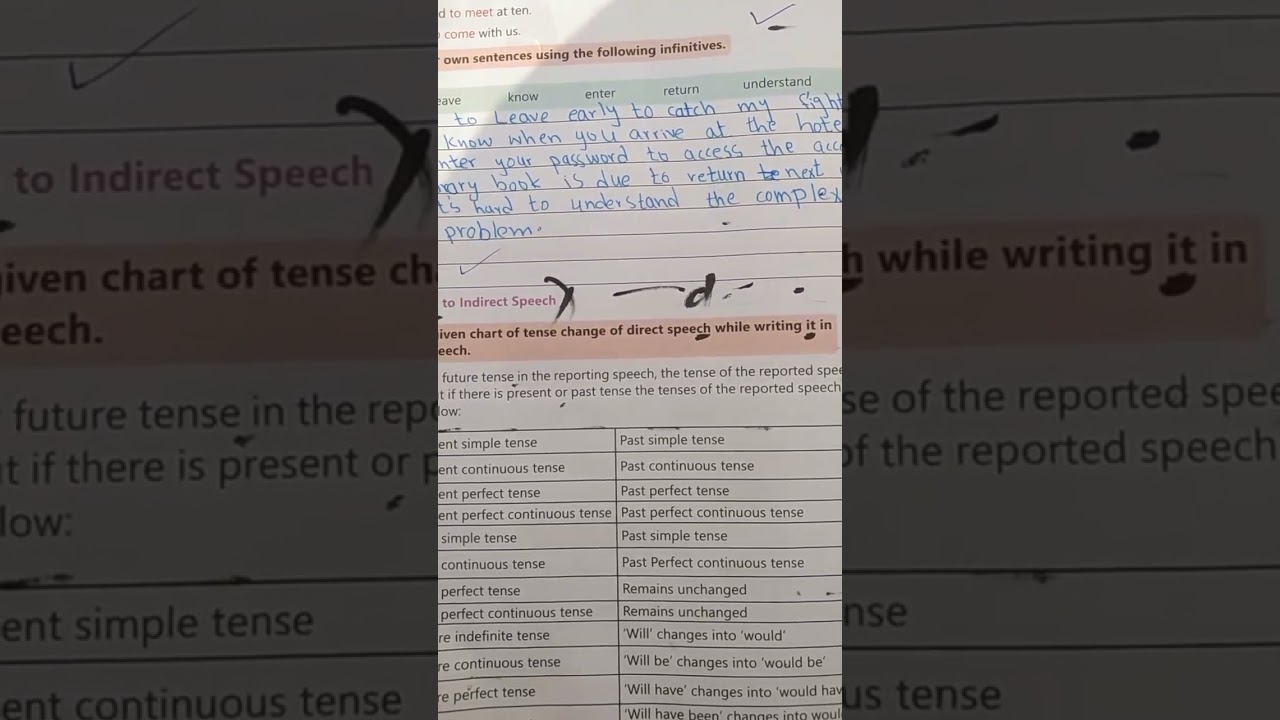 d to meet at ten.
come with us.
own sentences using the following infinitives.
eave know enter return understand
to Leave early to catch my fligh
know when you arrive at the hote
nter your password to access the acc
rary book is due to return next
t's hard to understand the complex
problem.
to Indirect Speech
iven chart of tense change of direct speech while writing it in
eech.
future tense in the reporting speech, the tense of the reported spee
t if there is present or past tense the tenses of the reported speech
low:
ent simple tense Past simple tense
ent continuous tense Past continuous tense
ent perfect tense Past perfect tense
ent perfect continuous tense Past perfect continuous tense
simple tense Past simple tense
continuous tense Past Perfect continuous tense
perfect tense Remains unchanged
perfect continuous tense Remains unchanged
re indefinite tense 'Will' changes into 'would'
re continuous tense 'Will be' changes into 'would be'
re perfect tense 'Will have' changes into 'would hav
'Will have been' changes into woul